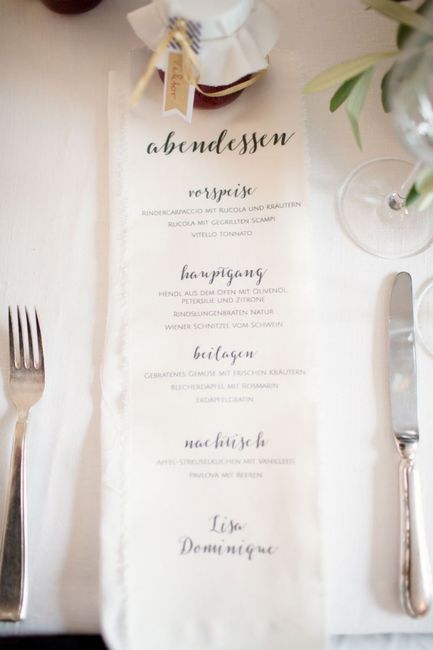 Viktor
abendessen
vorspeise
Rindercarpaccio mit Rucola und Kräutern
Rucola mit gegrillten Scampi
Vitello Tonnato
hauptgang
Hendl aus dem Ofen mit Olivenöl,
Petersilie und Zitrone
Rindslungenbraten Natur
Wiener Schnitzel vom Schwein
beilagen
Gebratenes Gemüse mit frischen Kräutern
Blecherdäpfel mit Rosmarin
Erdäpfelgratin
nachtisch
Apfel-Streuselkuchen mit Vanilleeis
Pavlova mit Beeren
Lisa
Dominique